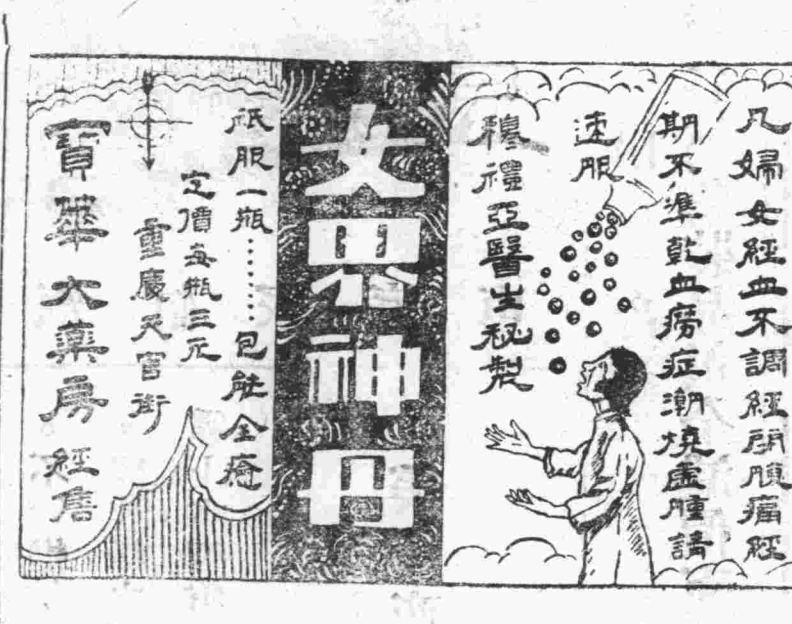 凡婦女經血不調經閉腹痛經
期不準乾血癆症潮燒虛腫請
速服
穆禮亞醫生秘製
女界神丹
祇服一瓶⋯⋯⋯包能全癒
定價每瓶三元
重慶天官街
寶華大藥房經售